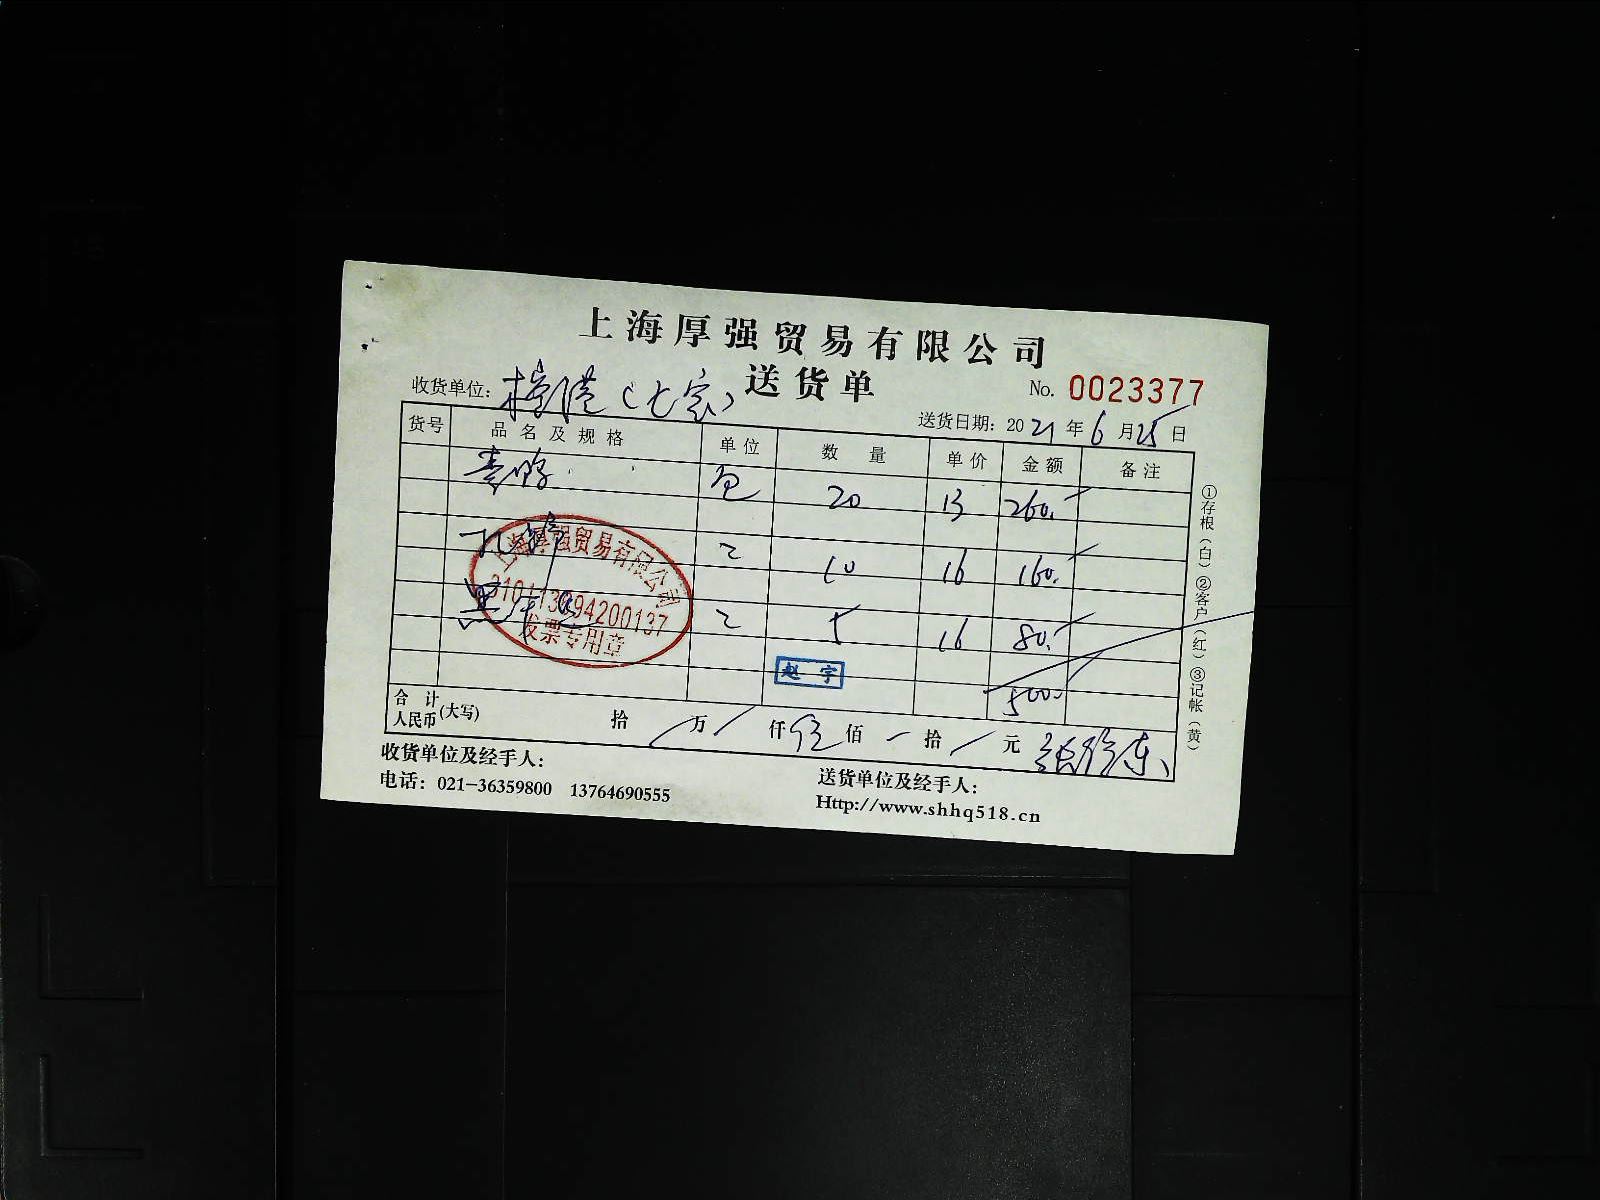 上海厚强贸易有限公司
送货单
No. 0023377
收货单位：
送货日期：2021年6月25日
货号 品名及规格 单位 数量 单价 金额 备注
包 20 13 260.
10 16 160.
5 16 80.
500.
上海厚强贸易有限公司
发票专用章
赵宇
合计人民币(大写) 拾 万 仟 伍 佰 拾 元
收货单位及经手人：
送货单位及经手人：
电话：021-36359800 13764690555
Http://www.shhq518.cn
①存根（白）②客户（红）③记帐（黄）